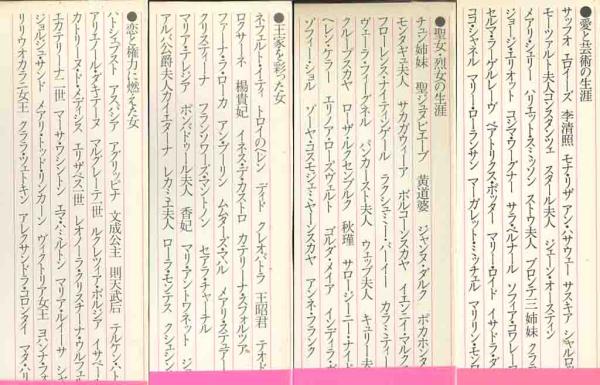 ●愛と芸術の生涯
サッフォ エロイーズ 李清照 モナ・リザ アン・ハサウェー サスキア シャルロ
モーツァルト夫人コンスタンツェ スタール夫人 ジェーン・オースティン
メアリ・シェリー ハリエット・スミッソン ストウ夫人 ブロンテ三姉妹 クララ
ジョージ・エリオット コジマ・ワーグナー サラ・ベルナール ソフィア・コワレー
セルマ・ラーゲルレーヴ ベアトリクス・ポター マリー・ロイド イサドラ・ダ
ココ・シャネル マリー・ローランサン マーガレット・ミッチェル マリリン・モンロ
●聖女・烈女の生涯
チュン姉妹 聖ジュヌビエーブ 黄道婆 ジャンヌ・ダルク ポカホンタ
モンタギュ夫人 サカガウィーア ボルコーンスカヤ イエンティ・マルク
フローレンス・ナイティンゲール ラクシュミー・バーイー カラミティ
ヴェーラ・フィグネル パンカースト夫人 ウェッブ夫人 キュリー夫
クループスカヤ ローザ・ルクセンブルク 秋瑾 サロージニー・ナイド
ヘレン・ケラー エリノア・ローズヴェルト ゴルダ・メイア インディラ・ガ
ゾフィー・ショル ゾーヤ・コスモジェミヤーンスカヤ アンネ・フランク
●王家を彩った女
ネフェルト・イティ トロイのヘレン ディド クレオパトラ 王昭君 テオド
ロクサーネ 楊貴妃 イネス・デ・カストロ カテリーナ・スフォルツァ
ファーナ・ラ・ローカ アン・ブーリン ムムターズ・マハル メアリ・ステュアー
クリスティーナ フランソワーズ・マントノン セアラ・チャーチル
マリア・テレジア ポンパドゥール夫人 香妃 マリ・アントワネット ジョ
アルバ公爵夫人ガイエターナ レカミエ夫人 ローラ・モンテス クシェシン
●恋と権力に燃えた女
ハトシェプスト アスパシア アグリッピナ 文成公主 則天武后 テルケン・ハト
アリエノール・ダキテーヌ マルグレーテ一世 ルクレツィア・ボルジア イサベー
カトリーヌ・ド・メディシス エリザベス一世 レオノーラ・クリスチーナ・ウルフェ
エカテリーナ二世 マーサ・ワシントン エマ・ハミルトン マリア・ルイーサ シャ
ジョルジュ・サンド メアリ・トッド・リンカーン ヴィクトリア女王 ヨハンナ・フォ
リリウオカラニ女王 クララ・ツェトキン アレクサンドラ・コロンタイ マタ・ハリ